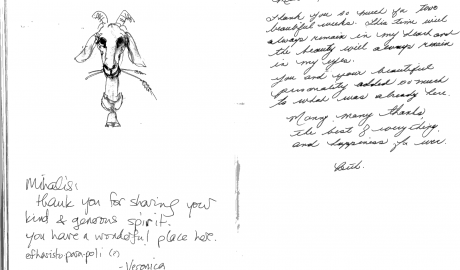 Mihalis:
thank you for sharing your
kind & generous spirit.
you have a wonderful place here.
efharisto para poli
-Veronica
Thank you so much for two
beautiful weeks. This time will
always remain in my heart and
the beauty will always remain
in my eyes.
You and your beautiful
personality added so much
to what was already here.
Many, many thanks
the best of everything
and happiness for ever.